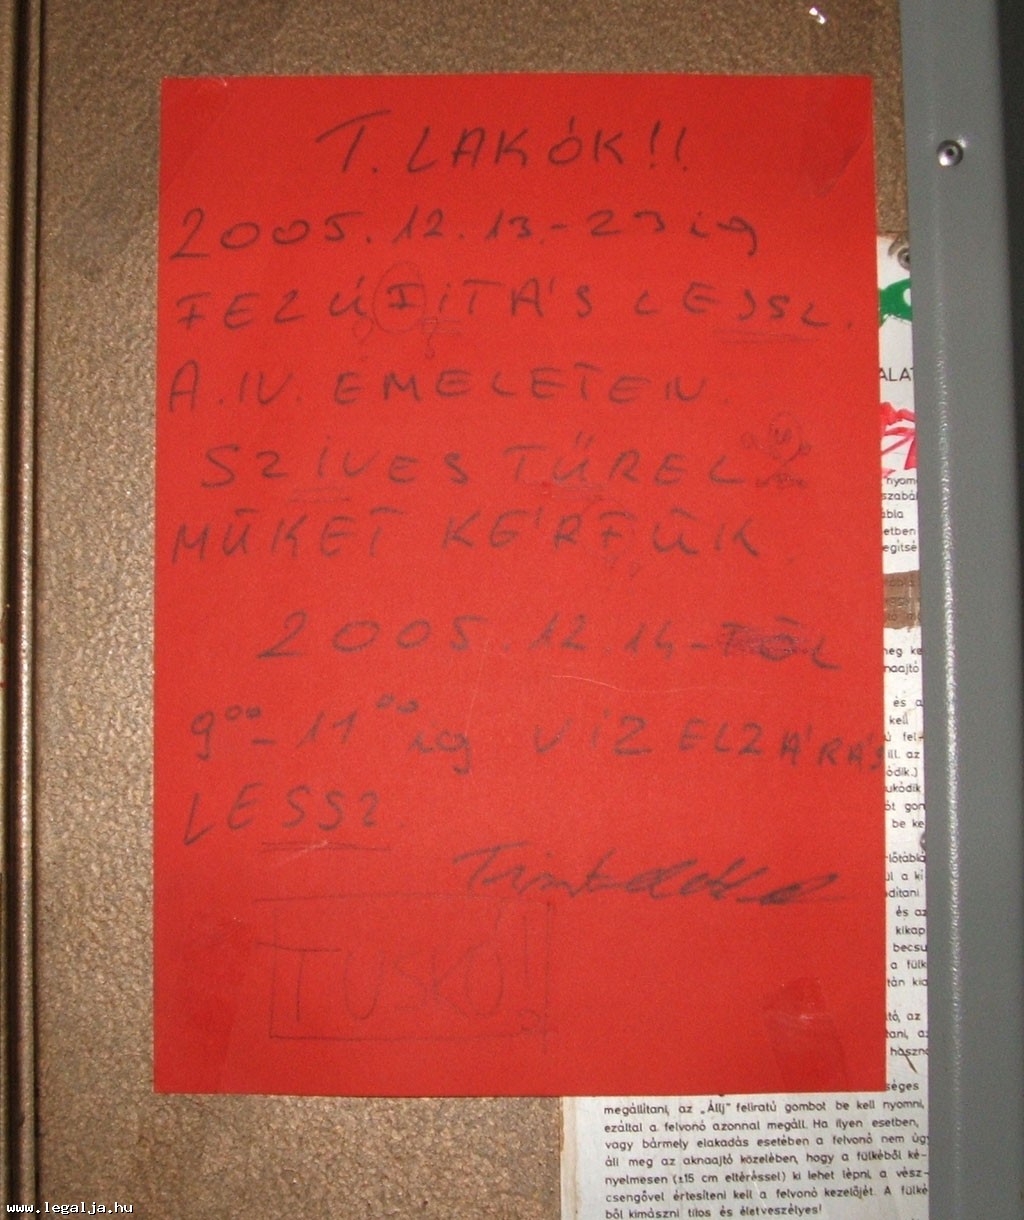 T. LAKÓK!!
2005.12.13.-23 ig
FELÚJITÁS LESSZ.
A. IV. EMELETEN.
SZIVES TŰREL
MŰKET KÉRJÜK.
2005.12.14-TŐL
9⁰⁰-11⁰⁰ ig VÍZ ELZÁRÁS
LESSZ.
TUSKÓ!!
ALAT
nyom
szabál
ábla
etben
egítsé
meg ke
naajtó
és a
kell
ú fel-
ill. az
ódik.)
ukódik
ót gon
be ke
lőtábla
ül a ki
dítani.
és az
kikap
becsu
a fülk
tán kia
tó, az
tani, az
haszná
séges
megállítani, az „Állj" feliratú gombot be kell nyomni,
ezáltal a felvonó azonnal megáll. Ha ilyen esetben,
vagy bármely elakadás esetében a felvonó nem úgy
áll meg az aknaajtó közelében, hogy a fülkéből ké-
nyelmesen (±15 cm eltéréssel) ki lehet lépni, a vész-
csengővel értesíteni kell a felvonó kezelőjét. A fülké
ből kimászni tilos és életveszélyes!
www.legalja.hu